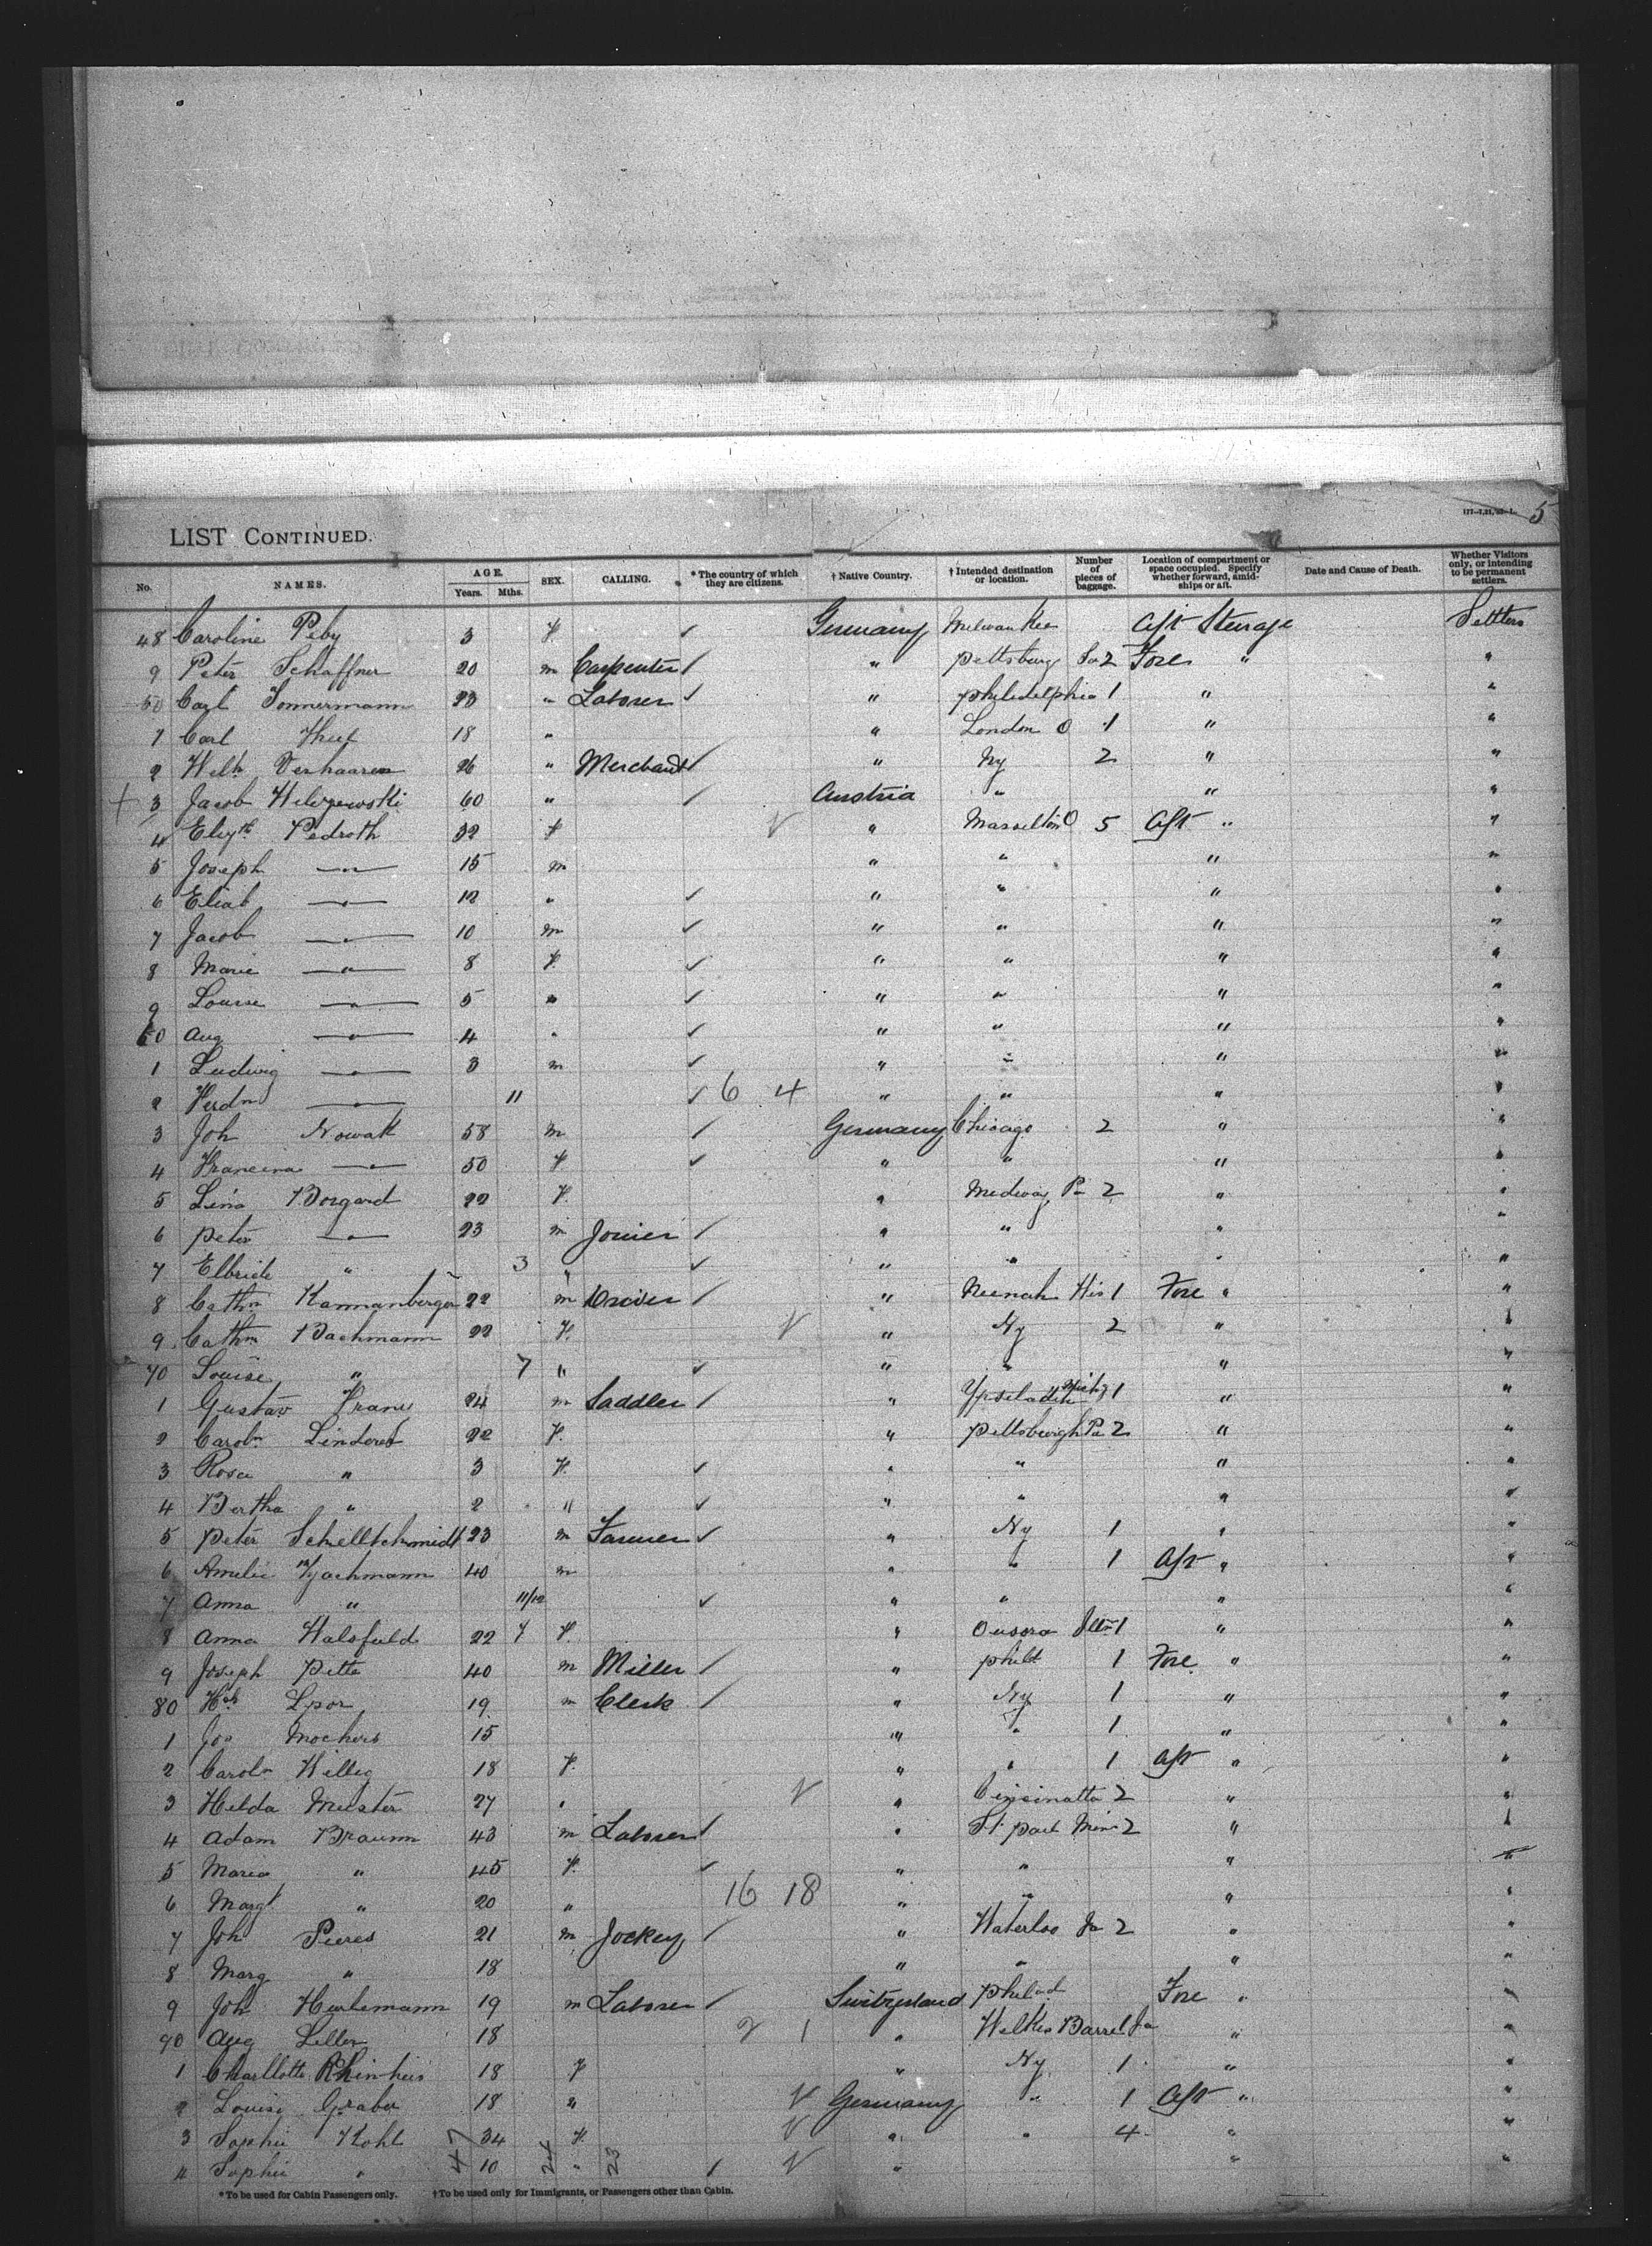 5
LIST CONTINUED.
No. NAMES. AGE. Years. Mths. SEX. CALLING. * The country of which they are citizens. † Native Country. † Intended destination or location. Number of pieces of baggage. Location of compartment or space occupied. Specify whether forward, amidships or aft. Date and Cause of Death. Whether Visitors only, or intending to be permanent settlers.
48 Caroline Peby 3 f ✓ Germany Milwaukee Aft Steurage Settlers
9 Peter Schaffner 20 m Carpenter / " pittsburg 2 Fore " "
50 Carl Sonnermann 23 " Laborer ✓ " philidelphia 1 " "
1 Carl 18 " " London O 1 " "
2 Welh Verhaaren 26 " Merchant / " Ny 2 " "
+ 3 Jacob 60 " ✓ Austria " " "
4 Pedroth 32 f V " Massilton O 5 Aft " "
5 Joseph —"— 15 m " " " "
6 Elias —"— 12 " ✓ " " " "
7 Jacob —"— 10 m ✓ " " " "
8 Marie —"— 8 f. ✓ " " " "
9 Louise —"— 5 " ✓ " " " "
60 Aug —"— 4 " ✓ " " " "
1 Ludwig —"— 3 m ✓ " " " "
2 Ferdn —"— 11 ✓ 6 4 " " " "
3 Joh Nowak 58 m / Germany Chicago 2 " "
4 Francina —"— 50 f ✓ " " " "
5 Lina Borgard 22 f. " Medway, Pa 2 " "
6 peter —"— 23 m Joiner / " " " "
7 " 3 " ✓ " " " "
8 Cathn Kannanberger 22 m Driver / " Neenah Wis 1 Fore " "
9 Cathn Bachmann 22 f. V " Ny 2 " "
70 Louise " 7 " ✓ " " " "
1 Gustav Franz 24 m Saddler / " Michg 1 " "
2 Caroln 22 f. " pittsburgh Pa 2 " "
3 Rosa " 3 f. ✓ " " " "
4 Bertha " 2 " ✓ " " " "
5 peter Schellschmidt 23 m Farmer ✓ " Ny 1 " "
6 Amelie 40 m " " 1 Aft " "
7 Anna " 11/12 ✓ " " " "
8 Anna Walsfeld 22 7 f. " 1 " "
9 Joseph Pitta 40 m Miller / " phild 1 Fore " "
80 19 m Clerk / " Ny 1 " "
1 Jos Mochers 15 " " 1 " "
2 Caroln Willig 18 f. " " 1 Aft " "
3 Helda Meister 27 " V " Cinsinatta 2 " "
4 Adam Braunn 43 m Laborer / " St. paul Min 2 " "
5 Maria " 45 f. ✓ " " " "
6 Margt " 20 " 16 18 " " " "
7 Joh Pieres 21 m Jockey / " Waterloo Ja 2 " "
8 Marg " 18 " " " "
9 Joh Hurlemann 19 m Laborer / Switzerland philad Fore " "
90 Aug 18 2 1 " Wilkes Barre 1 " "
1 Charllotte 18 f " Ny 1 " "
2 Louise Graber 18 " V Germany " 1 Aft " "
3 Sophie Kohl 34 f. V " " 4 " "
4 Sophie " 10 " / V " " "
47 24 23
* To be used for Cabin Passengers only. † To be used only for Immigrants, or Passengers other than Cabin.